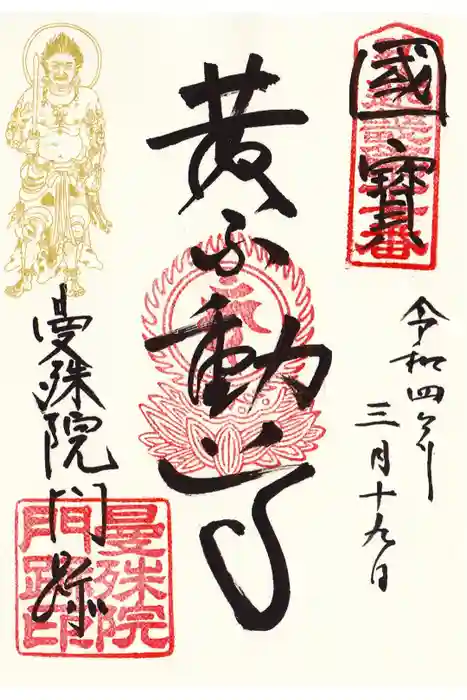 國寳
令和四年
三月十九日
黄不動尊
曼殊院門跡
曼殊院
門跡印